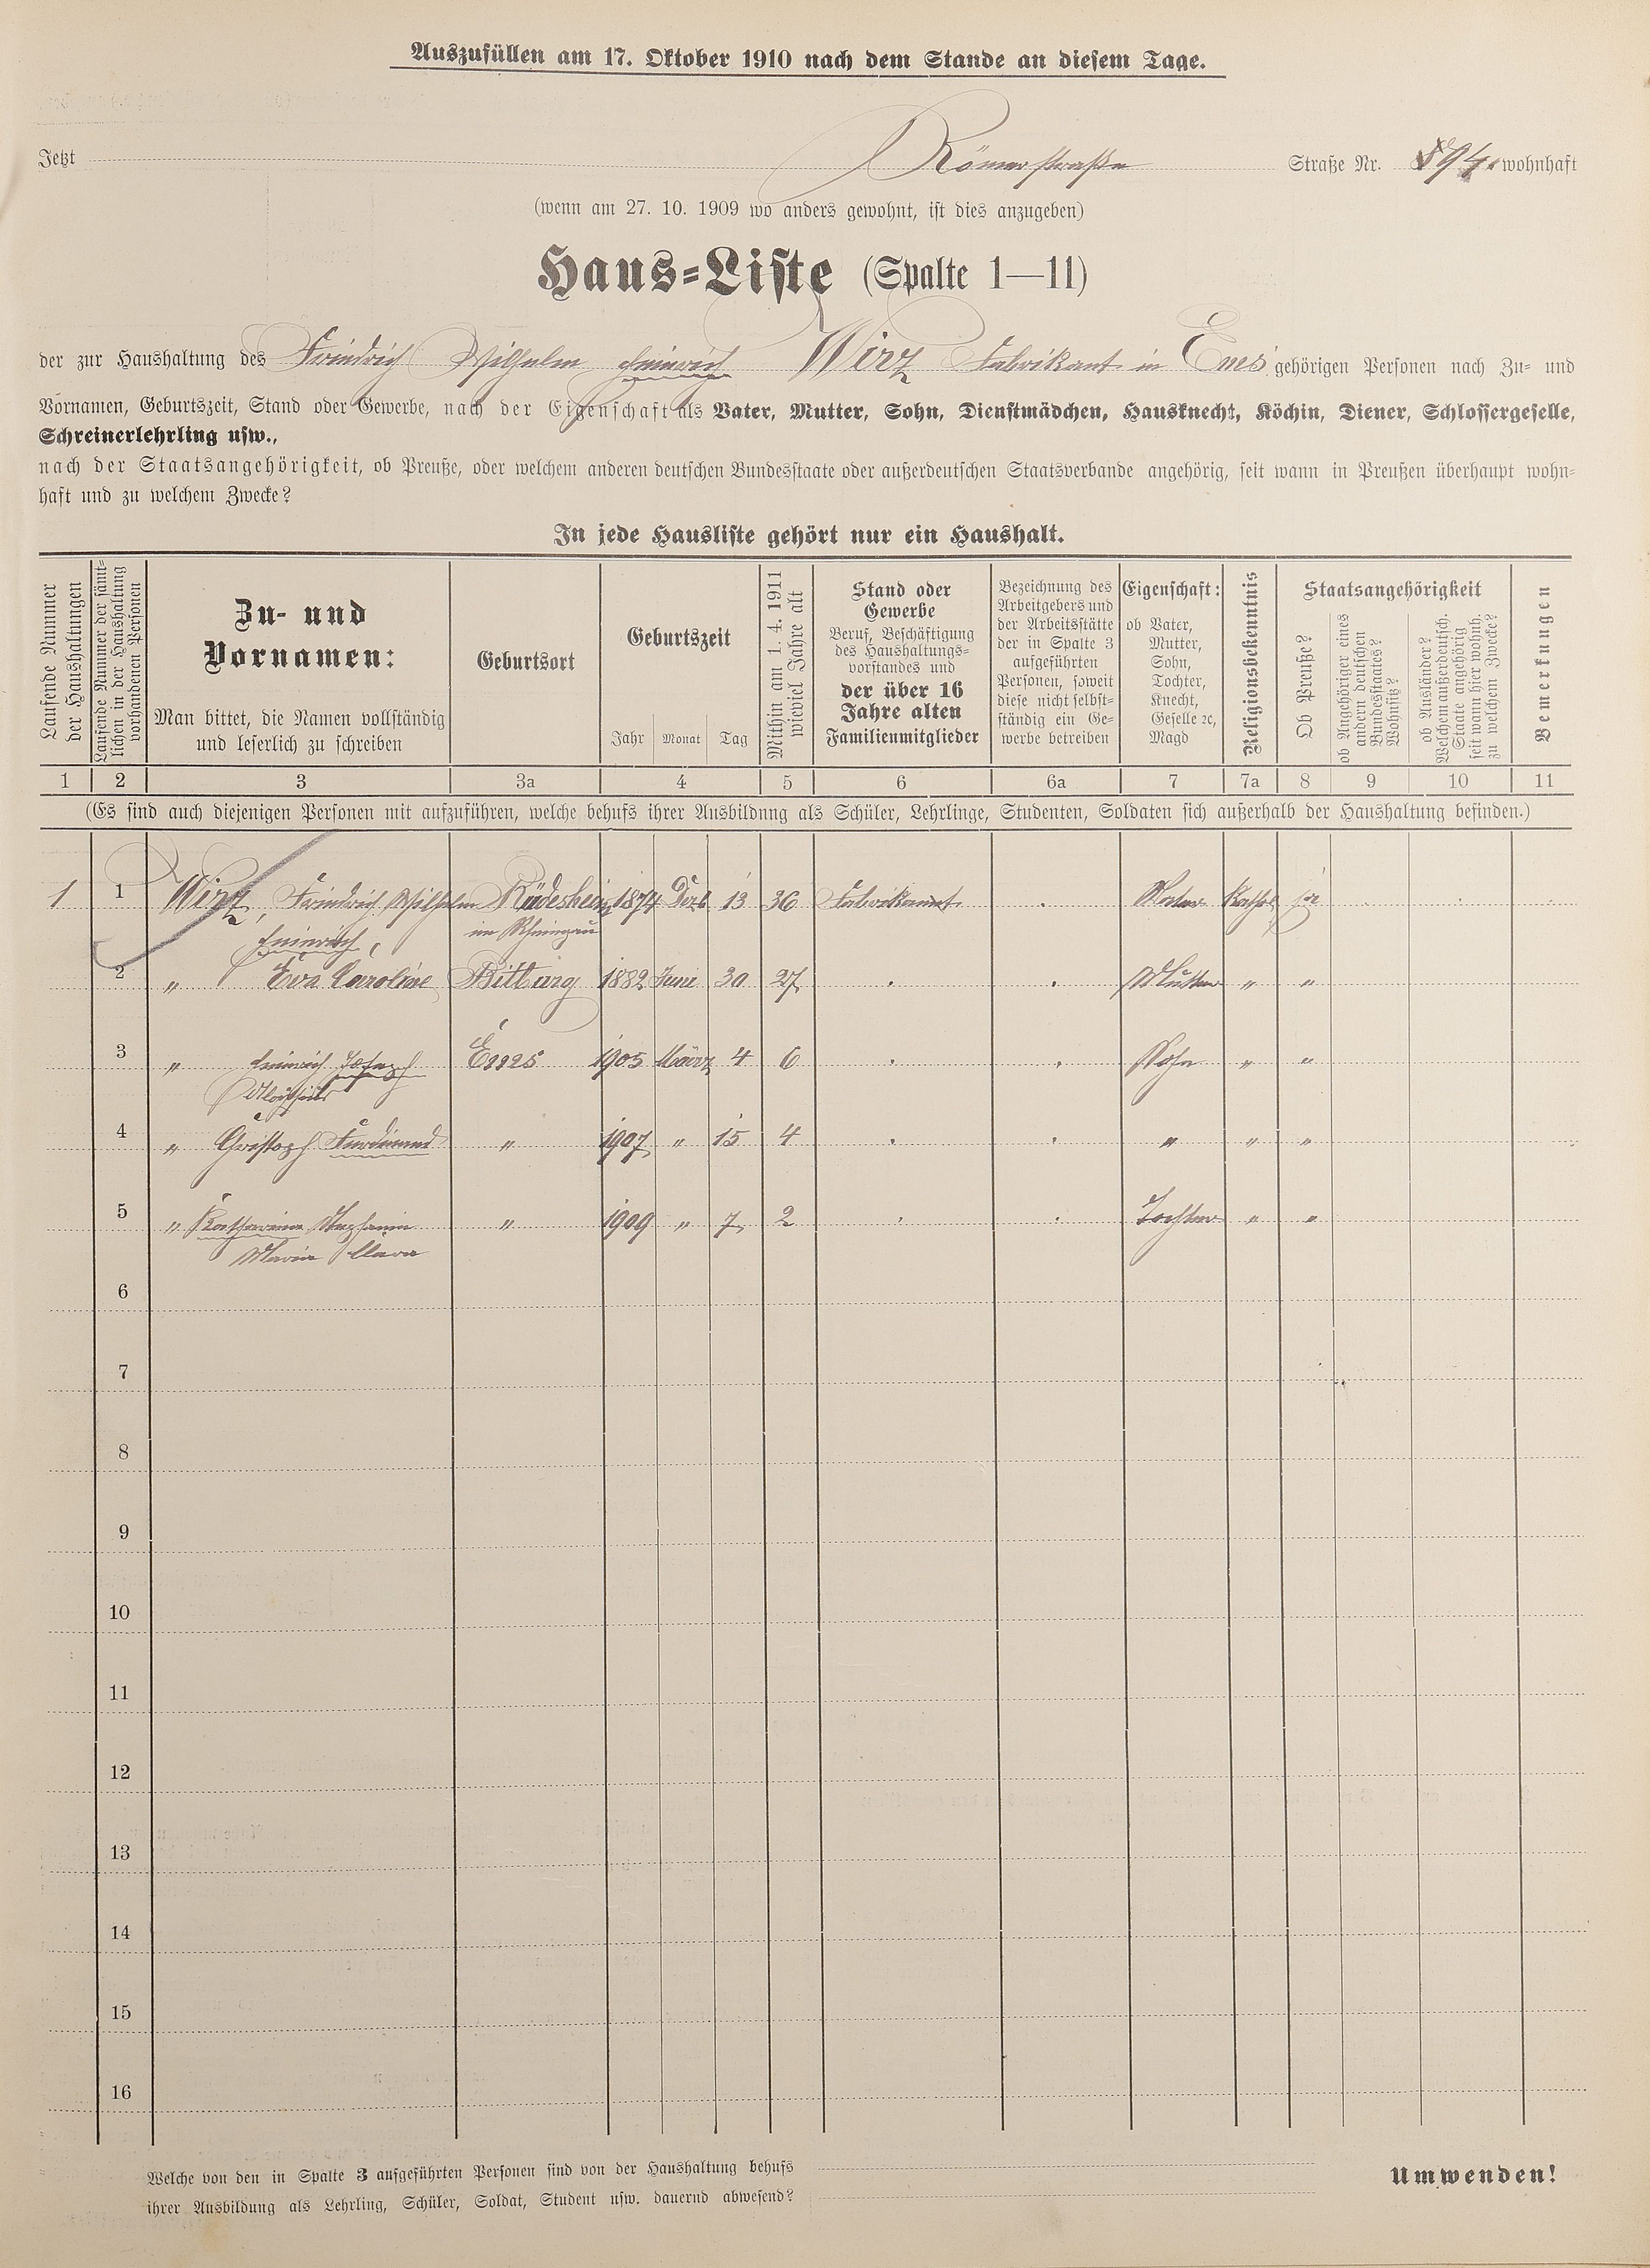 Auszufüllen am 17. Oktober 1910 nach dem Stande an diesem Tage.
Jetzt Römerstraße Straße Nr. 94 wohnhaft
(wenn am 27. 10. 1909 wo anders gewohnt, ist dies anzugeben)
Haus-Liste (Spalte 1—11)
der zur Haushaltung des Friedrich Wilhelm Heinrich Wirz Fabrikant in Ems gehörigen Personen nach Zu- und
Vornamen, Geburtszeit, Stand oder Gewerbe, nach der Eigenschaft als Vater, Mutter, Sohn, Dienstmädchen, Hausknecht, Köchin, Diener, Schlossergeselle,
Schreinerlehrling usw.,
nach der Staatsangehörigkeit, ob Preuße, oder welchem anderen deutschen Bundesstaate oder außerdeutschen Staatsverbande angehörig, seit wann in Preußen überhaupt wohn-
haft und zu welchem Zwecke?
In jede Hausliste gehört nur ein Haushalt.
Laufende Nummer
der Haushaltungen
Laufende Nummer der sämt-
lichen in der Haushaltung
vorhandenen Personen
Zu- und
Vornamen:
Man bittet, die Namen vollständig
und leserlich zu schreiben
Geburtsort
Geburtszeit
Jahr Monat Tag
Mithin am 1. 4. 1911
wieviel Jahre alt
Stand oder
Gewerbe
Beruf, Beschäftigung
des Haushaltungs-
vorstandes und
der über 16
Jahre alten
Familienmitglieder
Bezeichnung des
Arbeitgebers und
der Arbeitsstätte
der in Spalte 3
aufgeführten
Personen, soweit
diese nicht selbst-
ständig ein Ge-
werbe betreiben
Eigenschaft:
ob Vater,
Mutter,
Sohn,
Tochter,
Knecht,
Geselle ꝛc,
Magd
Religionsbekenntnis
Staatsangehörigkeit
Ob Preuße?
ob Angehöriger eines
andern deutschen
Bundesstaates?
Wohnsitz?
ob Ausländer?
Welchem außerdeutsch.
Staate angehörig
seit wann hier wohnh.
zu welchem Zwecke?
Bemerkungen
1 2 3 3a 4 5 6 6a 7 7a 8 9 10 11
(Es sind auch diejenigen Personen mit aufzuführen, welche behufs ihrer Ausbildung als Schüler, Lehrlinge, Studenten, Soldaten sich außerhalb der Haushaltung befinden.)
1 1 Wirz, Friedrich Wilhelm Rüdesheim 1874 Dezb 13 36 Fabrikant Vater Kathol ja
Heinrich, im Rheingau
2 " Eva Caroline Bitburg 1882 Juni 30 27 Mutter " "
3 " Heinrich Joseph Ems 1905 März 4 6 Sohn " "
Aloisius
4 " Christoph Ferdinand " 1907 " 15 4 " " "
5 " Katharina Stephanie " 1909 " 7 2 Tochter " "
Maria Clara
6
7
8
9
10
11
12
13
14
15
16
Welche von den in Spalte 3 aufgeführten Personen sind von der Haushaltung behufs
ihrer Ausbildung als Lehrling, Schüler, Soldat, Student usw. dauernd abwesend?
Umwenden!